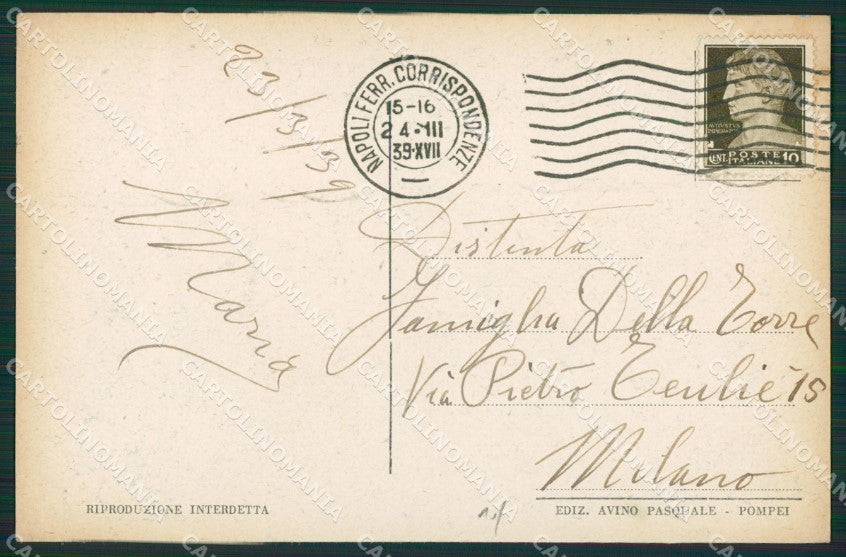 23/3/39
Maria
NAPOLI FERR. CORRISPONDENZE
15-16
24·III
39·XVII
AVGVSTVS
IMPERATOR
CENT. POSTE ITALIANE 10
Distinta
Famiglia Della Torre
Via Pietro Teulié 15
Milano
RIPRODUZIONE INTERDETTA
EDIZ. AVINO PASQUALE - POMPEI
CARTOLINOMANIA